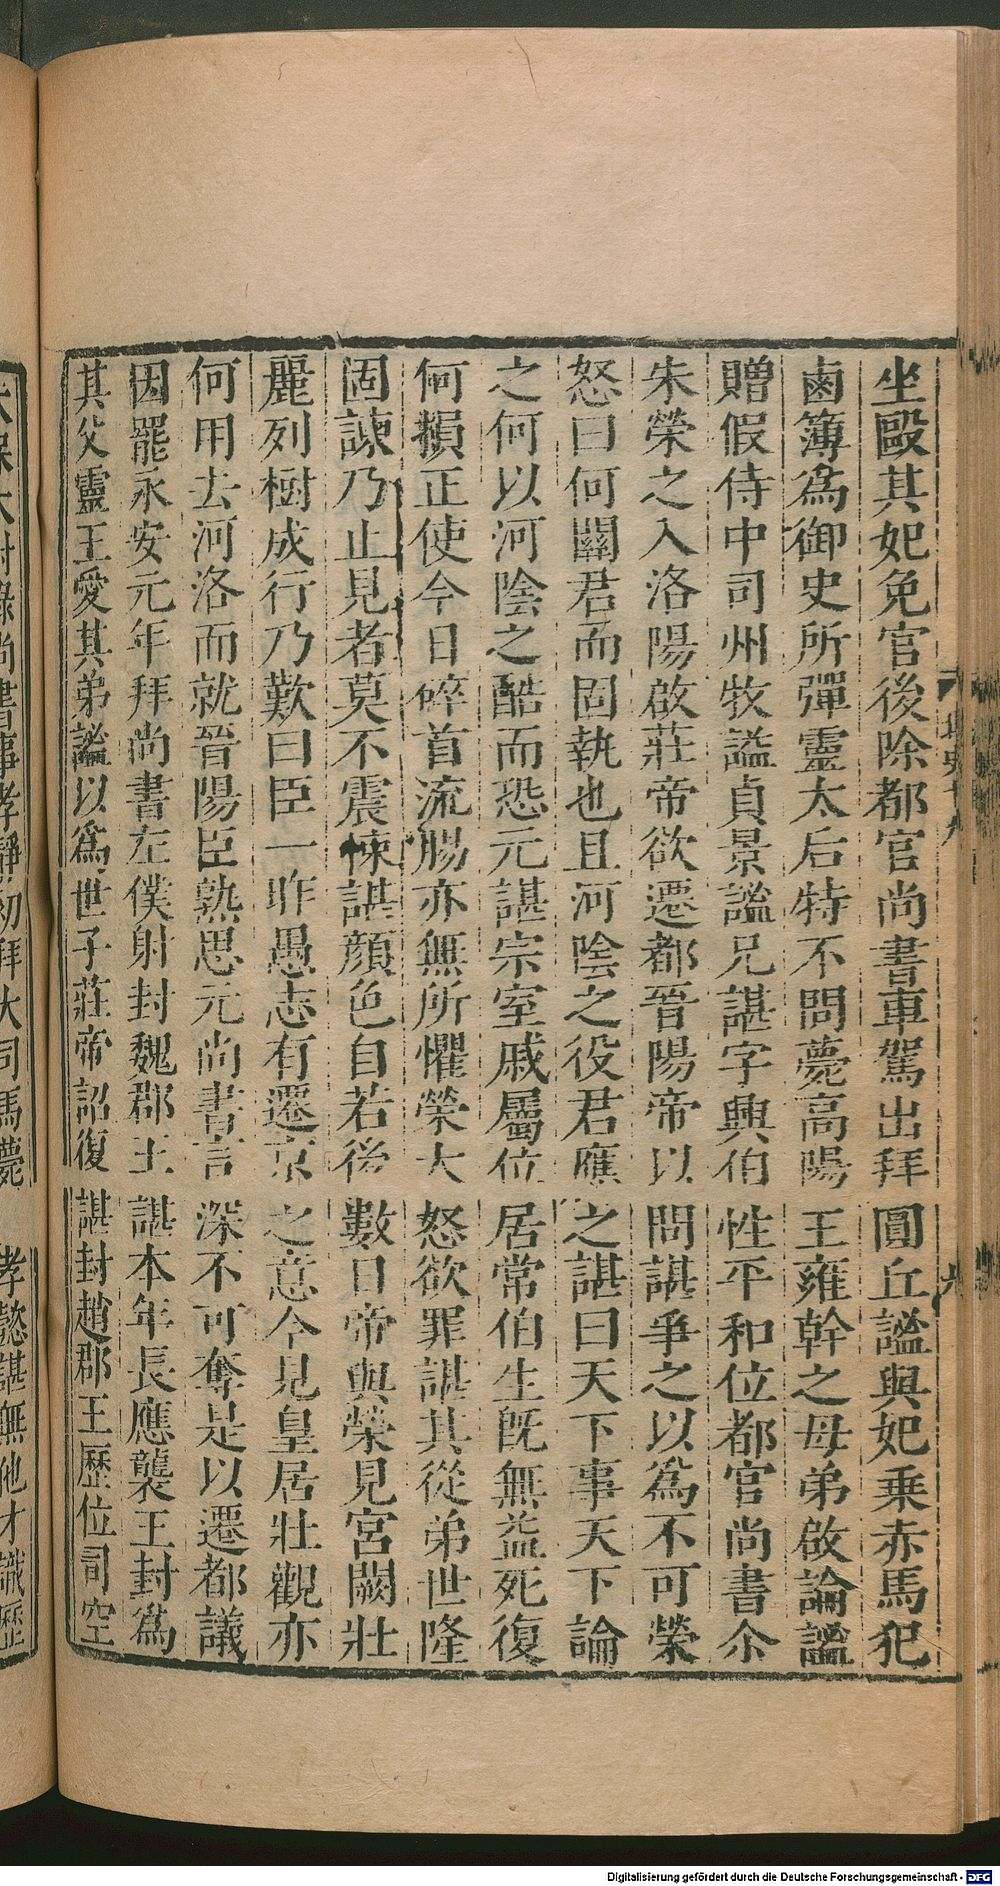 坐毆其妃免官後除都官尚書車駕出拜圓丘謐與妃乗赤馬犯
鹵簿爲御史所彈靈太后特不問薨高陽王雍幹之母弟啟論謚
贈假侍中司州牧謚貞景謐兄諶字興伯性平和位都官尚書尒
朱榮之入洛陽啟莊帝欲遷都晉陽帝以問諶爭之以爲不可榮
怒曰何關君而固執也且河陰之役君應之諶曰天下事天下論
之何以河陰之酷而恐元諶宗室戚屬位居常伯生旣無益死復
何損正使今日碎首流腸亦無所懼榮大怒欲罪諶其從弟世隆
固諫乃止見者莫不震悚諶顔色自若後數日帝與榮見宮闕壯
麗列樹成行乃歎曰臣一昨愚志有遷京之意今見皇居壯觀亦
何用去河洛而就晉陽臣熟思元尚書言深不可奪是以遷都議
因罷永安元年拜尚書左僕射封魏郡王諶本年長應襲王封爲
其父靈王愛其弟謐以爲世子莊帝詔復諶封趙郡王歷位司空
尚書事孝靜初拜大司馬薨 孝懿諶無他才識歷
Digitalisierung gefördert durch die Deutsche Forschungsgemeinschaft - DFG